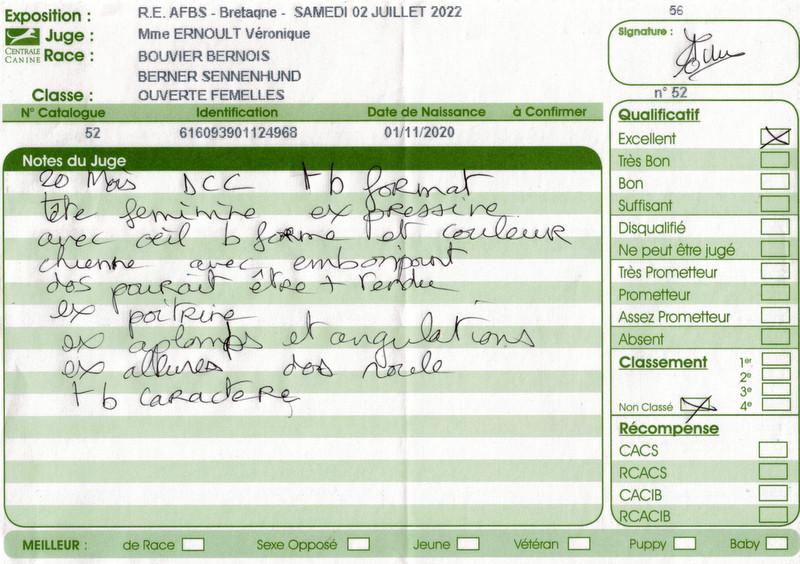 Exposition : R.E. AFBS - Bretagne - SAMEDI 02 JUILLET 2022 56
CENTRALE CANINE
Juge : Mme ERNOULT Véronique
Race : BOUVIER BERNOIS
BERNER SENNENHUND
Classe : OUVERTE FEMELLES
Signature :
n° 52
N° Catalogue Identification Date de Naissance à Confirmer
52 616093901124968 01/11/2020
Notes du Juge
20 Mois DCC tb format
tête feminine expressive
avec œil b forme et couleur
chienne avec embonpoint
dos pourait être + tendu
ex poitrine
ex aplombs et angulations
ex allures dos roule
tb caractere
Qualificatif
Excellent
Très Bon
Bon
Suffisant
Disqualifié
Ne peut être jugé
Très Prometteur
Prometteur
Assez Prometteur
Absent
Classement 1er
2e
3e
Non Classé 4e
Récompense
CACS
RCACS
CACIB
RCACIB
MEILLEUR : de Race Sexe Opposé Jeune Vétéran Puppy Baby